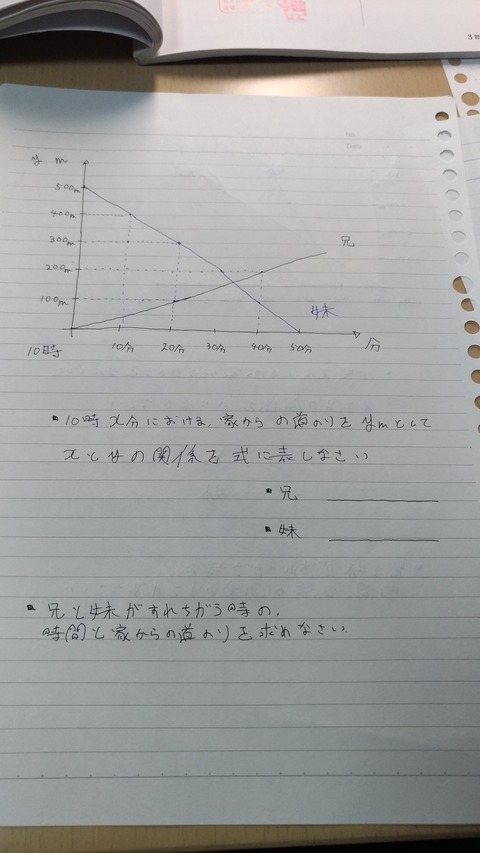 y m
500m
400m
300m
200m
100m
兄
妹
10時
10分
20分
30分
40分
50分
分
10時x分における、家からの道のりをymとして
xとyの関係を式に表しなさい
兄
妹
兄と妹がすれちがう時の、
時間と家からの道のりを求めなさい